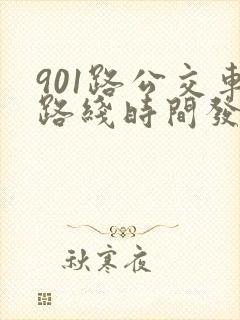 901路公交車
路綫時間發
秋寒夜